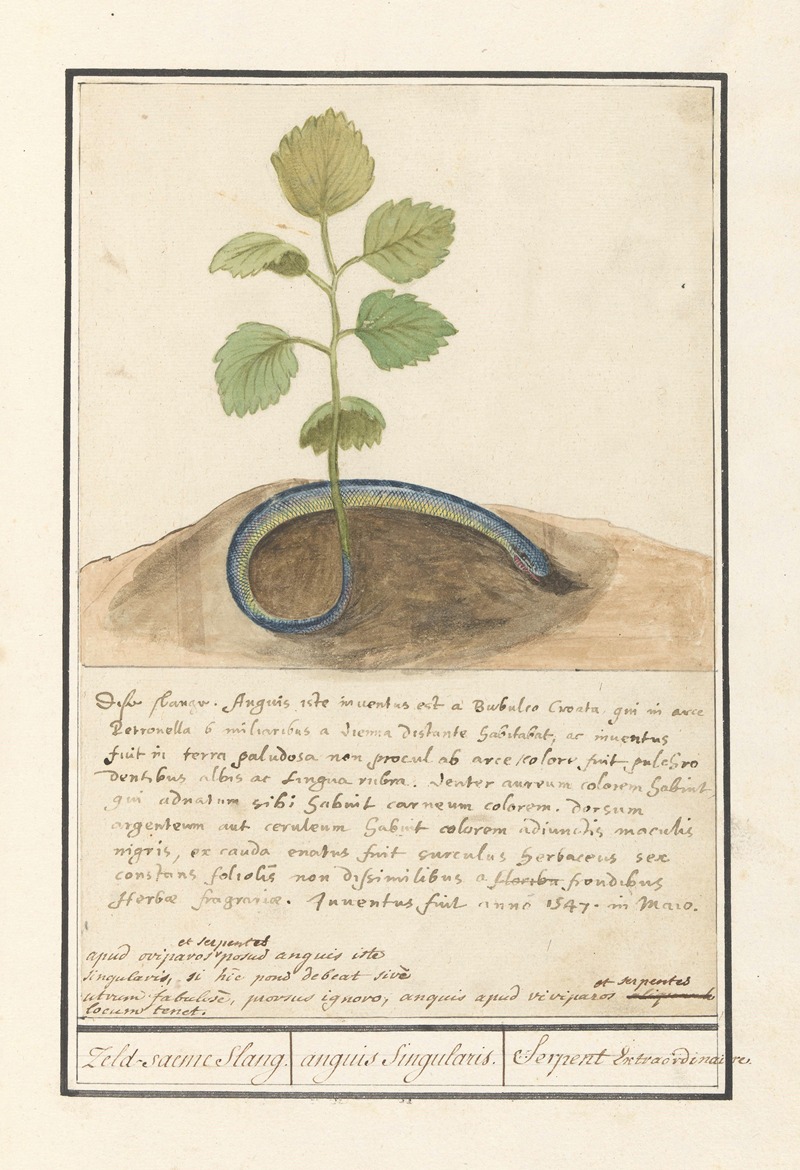 Dese slange. Anguis iste inventus est a Bubulco Croata qui in arce
Petronella 6 miliaribus a Vienna distante habitabat, ac inventus
fuit in terra paludosa non procul ab arce / colore fuit pulchro
Dentibus albis ac Lingua rubra. Venter aureum colorem habuit,
qui adnatum sibi habuit carneum colorem. Dorsum
argenteum aut ceruleum habuit colorem adiunctis maculis
nigris, ex cauda enatus fuit surculus herbaceus sex
constans foliolis non dissimilibus a frondibus
Herbæ fragrariæ. Inventus fuit anno 1547. in Maio.
et serpentes
apud oviparos posuit anguis iste
singularis, si hic poni debeat sive
et serpentes
utrum fabulose, prorsus ignoro, anguis apud viviparos
locum tenet.
Zeld-saeme Slang. anguis Singularis. Serpent Extraordinaire.